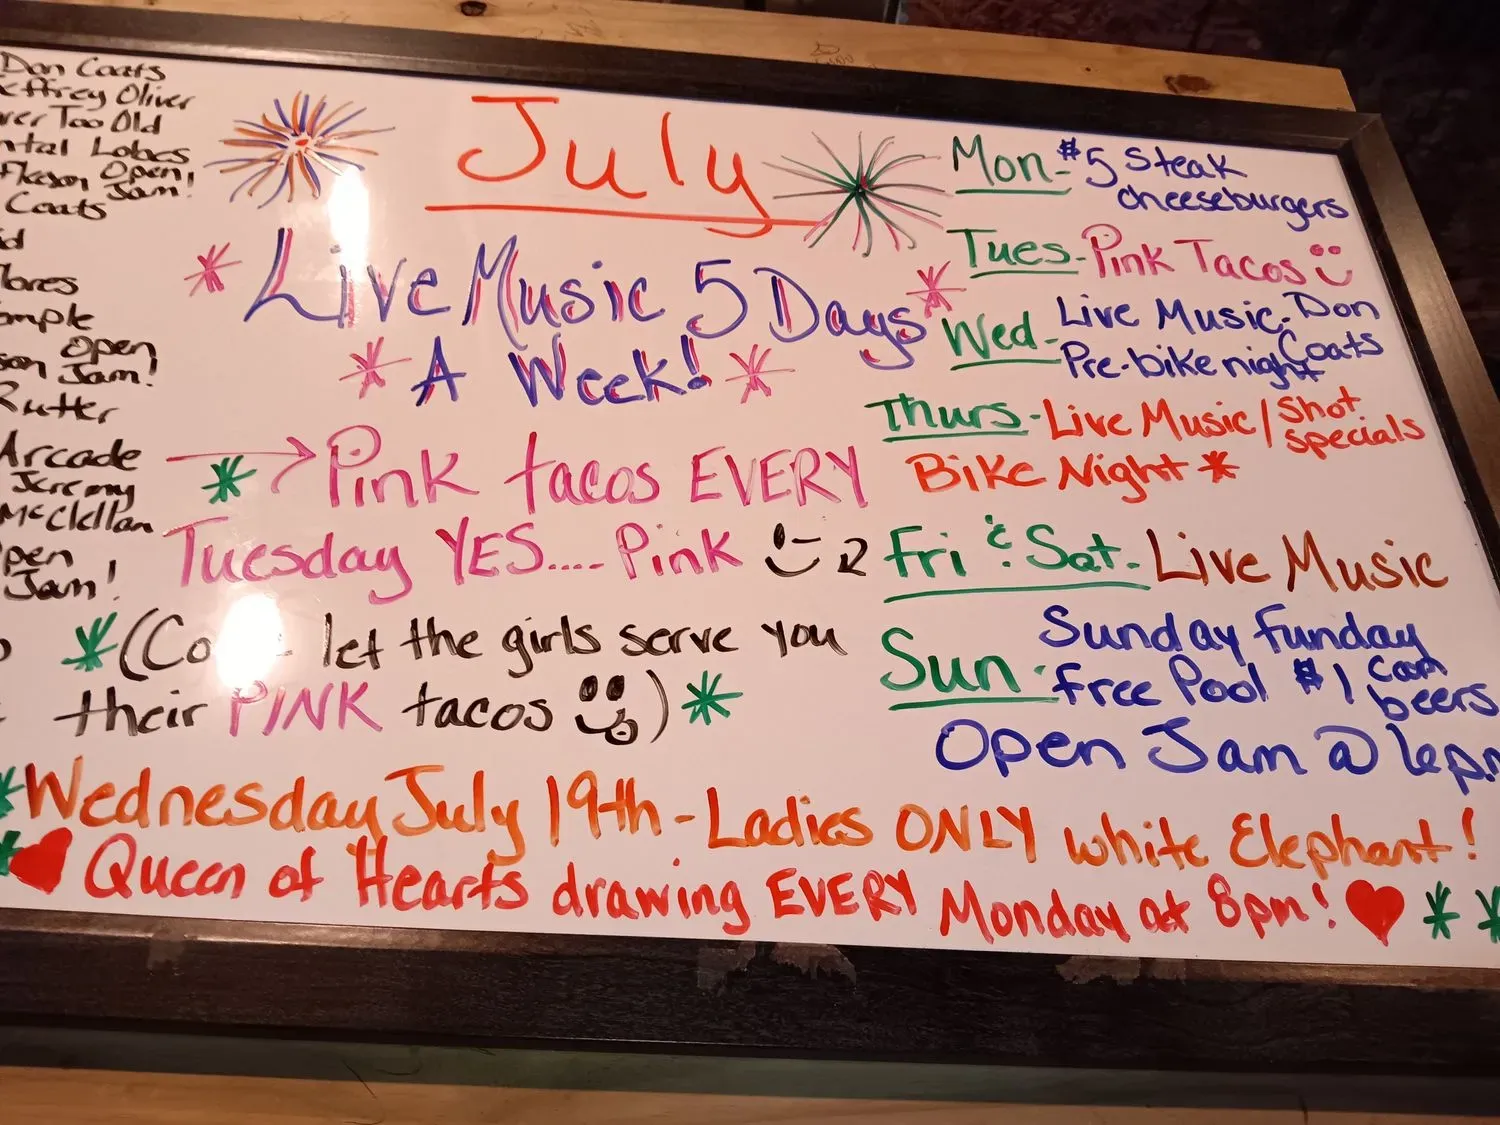 Don Coats
effrey Oliver
ver Too Old
ntal Lobes
fleeson Open
Jam!
Coats
id
lores
emple
son Open
Jam!
Rutter
Arcade
Jeremy
McClellan
pen
Jam!
July
*Live Music 5 Days*
*A Week!*
* → Pink tacos EVERY
Tuesday YES.... Pink
*(Co let the girls serve you
their PINK tacos)*
Mon-$5 Steak
cheeseburgers
Tues-Pink Tacos
Wed-Live Music-Don
Coats
Pre-bike night
Thurs-Live Music/Shot
specials
Bike Night *
Fri & Sat.-Live Music
Sun-Sunday Funday
Free Pool $1 can
beers
Open Jam @ 6p
*Wednesday July 19th-Ladies ONLY white Elephant!
*♥ Queen of Hearts drawing EVERY Monday at 8pm! ♥ * *